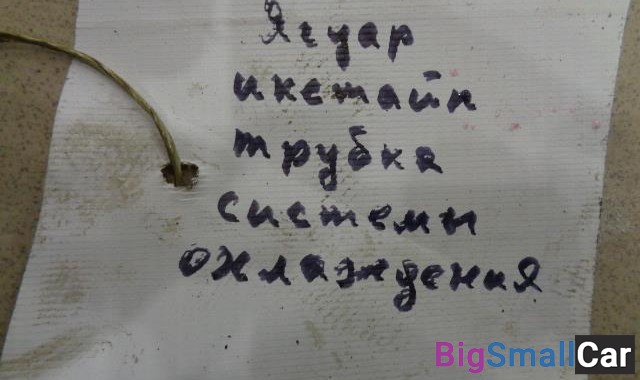 Ягуар
икстайп
трубка
системы
охлаждения
BigSmallCar